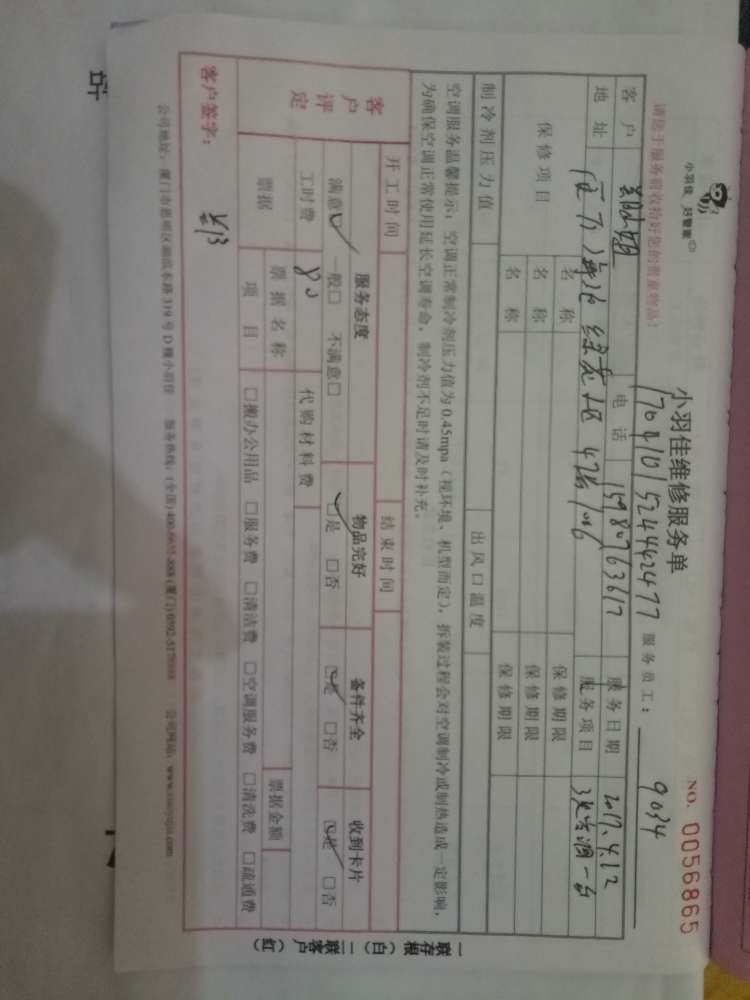 小羽佳 好管家
小羽佳维修服务单
NO. 0056865
请您于服务前收拾好您的贵重物品!
1704101524442477
服务员工: 9034
客户 电话 15980763617 服务日期 2017.4.12
地址 服务项目
保修项目 名称 保修期限
名称 保修期限
名称 保修期限
制冷剂压力值 出风口温度
空调服务温馨提示:空调正常制冷剂压力值为0.45mpa(视环境、机型而定),拆装过程会对空调制冷或制热造成一定影响,
为确保空调正常使用延长空调寿命,制冷剂不足时请及时补充。
开工时间 结束时间
客户评定
服务态度 物品完好 备件齐全 收到卡片
满意☑ 一般□ 不满意□ ☑是 □否 ☑是 □否 ☑是 □否
工时费 80 代购材料费
票据 票据名称 票据金额
项目 □搬办公用品 □服务费 □清洁费 □空调服务费 □清洗费 □疏通费
客户签字:
公司地址:厦门市思明区 319号D幢小羽佳 服务热线:(全国) (厦门) 公司网站:www.xiaoyujia.com
一联存根(白) 二联客户(红)